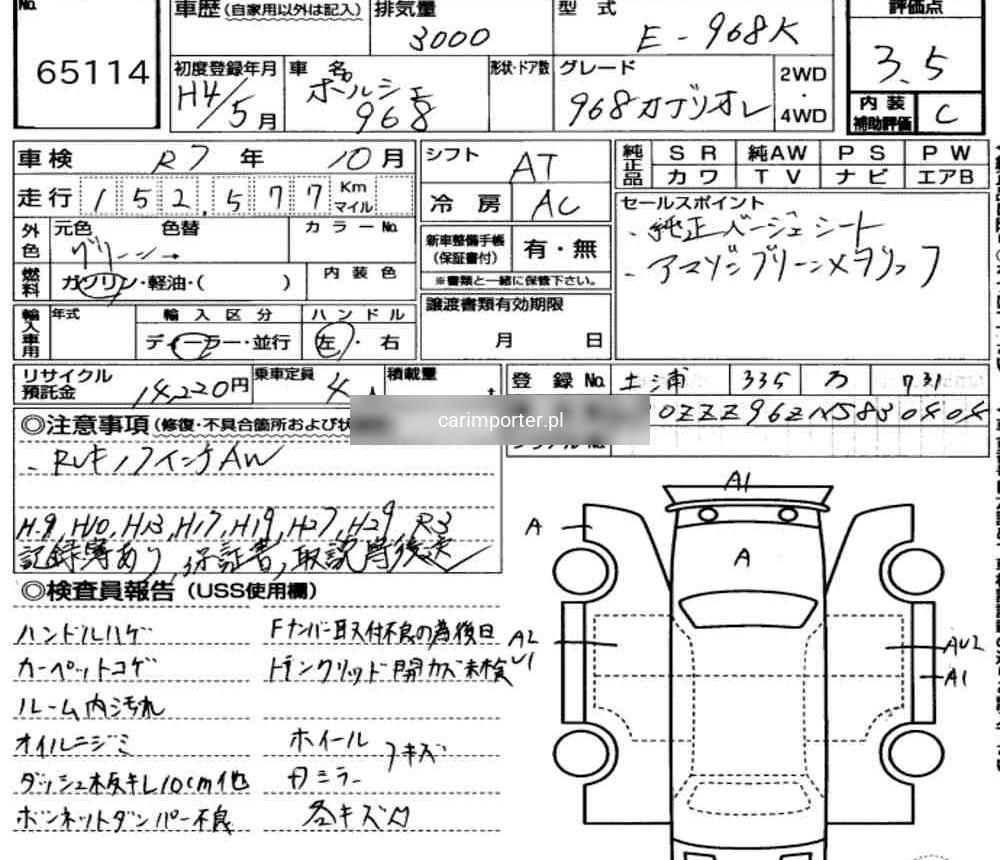 No.
65114
車歴 (自家用以外は記入)
排気量
3000
型式
E-968K
評価点
3.5
初度登録年月
H4/5月
車名
ポルシェ
968
形状・ドア数
グレード
968カブリオレ
2WD
・
4WD
内装
補助評価
C
車検 R7年 10月
走行 152,577 Km マイル
外色
元色 グリーン→
色替
カラーNo.
燃料
ガソリン・軽油・( )
内装色
輸入車用
年式
輸入区分
ディーラー・並行
ハンドル
左・右
シフト AT
冷房 AC
新車整備手帳
(保証書付)
有・無
※書類と一緒に保管下さい。
譲渡書類有効期限
月 日
純正品
SR 純AW PS PW
カワ TV ナビ エアB
セールスポイント
・純正ベージュシート
・アマゾングリーンメタリック
リサイクル
預託金
14,220円
乗車定員
4人
積載量
t
登録No. 土浦 335 ろ 731
0ZZZ96ZNS830404
carimporter.pl
◎注意事項 (修復・不具合箇所および
・Rレキノフインチ AW
H9, H10, H13, H17, H19, H27, H29, R3
記録簿あり、保証書、取説等後送
◎検査員報告 (USS使用欄)
ハンドルハゲ
カーペットコゲ
ルーム内汚れ
オイルニジミ
ダッシュ板キレ10cm他
ボンネットダンパー不良
Fナンバー取付不良の為後日
トランクリッド開カズ未検
ホイール
ドミラー
フキズ
各キズ凹
A1
A
A
A2
U1
AU2
A1